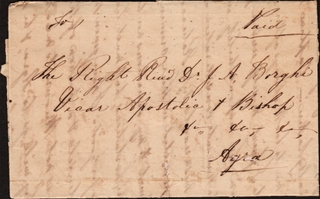 To
Paid
The Right Revd Dr J. A. Borghi
Vicar Apostolic & Bishop
&c &c, &c,
Agra